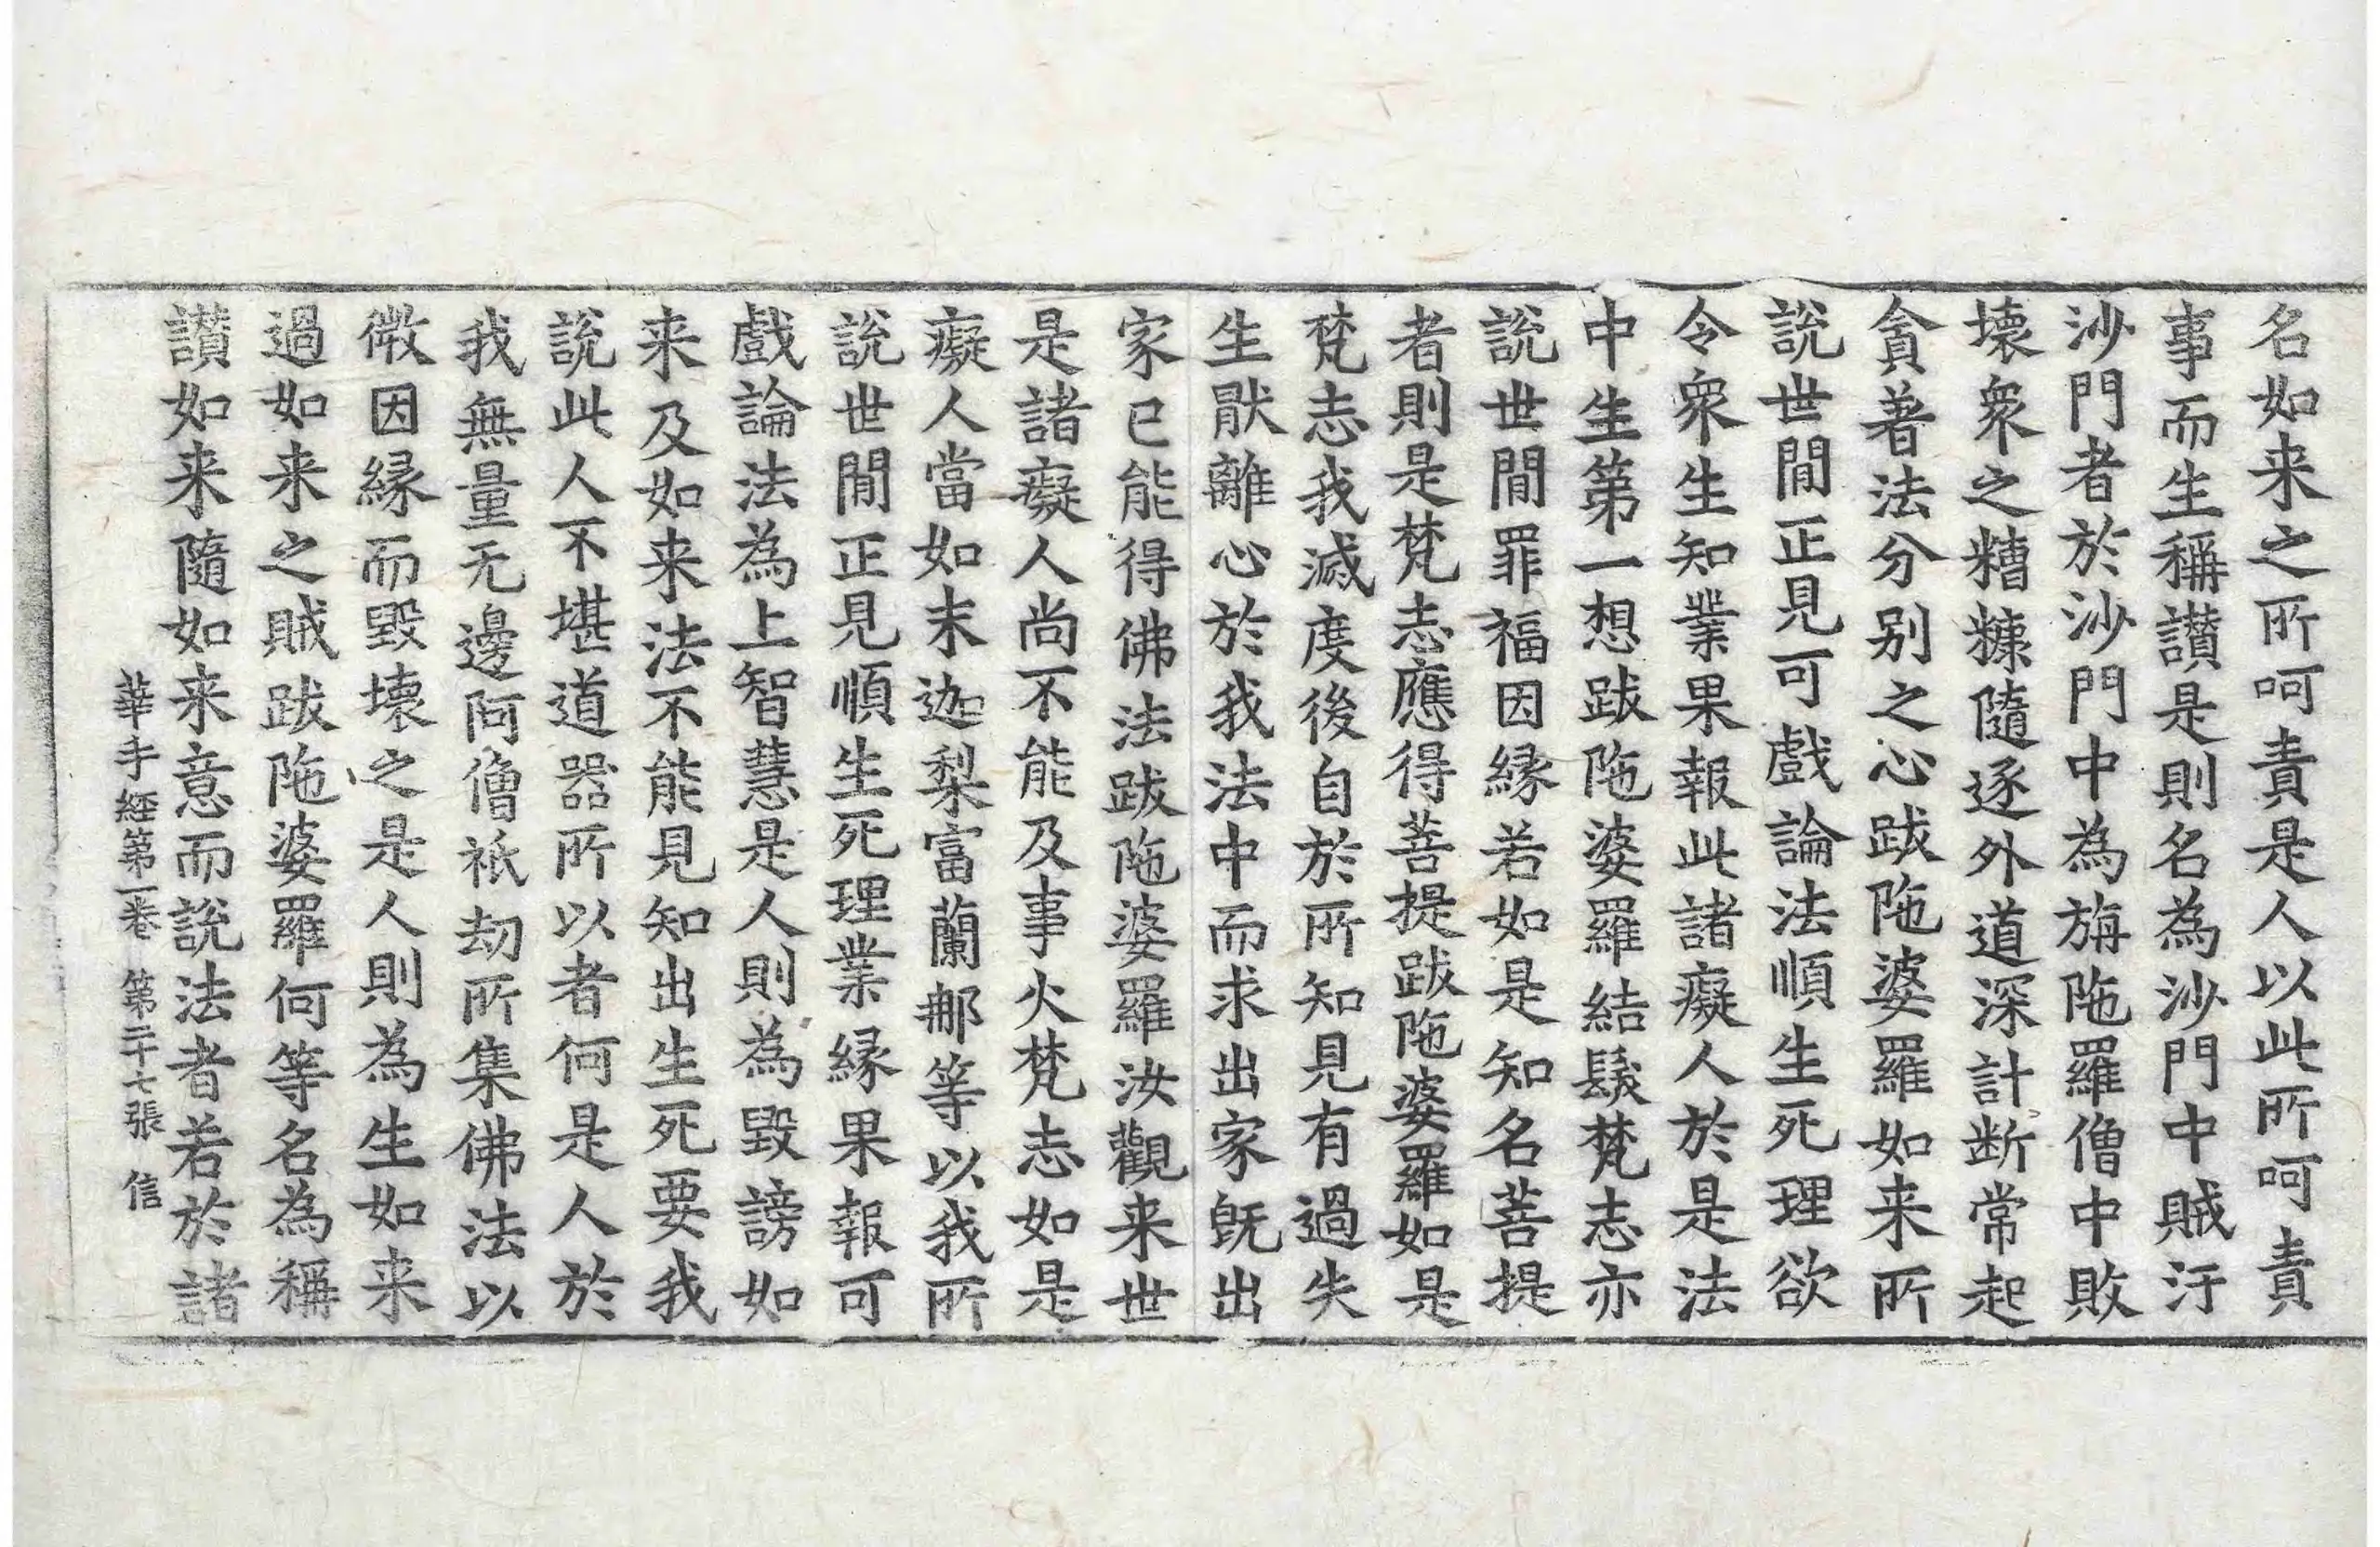 名如来之所呵責是人以此所呵責
事而生稱讃是則名為沙門中賊汙
沙門者於沙門中為旃陁羅僧中敗
壊衆之糟糠隨逐外道深計断常起
貪著法分别之心跋陁婆羅如来所
說世閒正見可戲論法順生死理欲
令衆生知業果報此諸癡人於是法
中生第一想跋陁婆羅結鬚梵志亦
說世閒罪福因縁若如是知名菩提
者則是梵志應得菩提跋陁婆羅如是
梵志我滅度後自於所知見有過失
生猒離心於我法中而求出家旣出
家已能得佛法跋陁婆羅汝觀来世
是諸癡人尚不能及事火梵志如是
癡人當如末迦梨富蘭郍等以我所
說世閒正見順生死理業縁果報可
戲論法為上智慧是人則為毀謗如
来及如来法不能見知出生死要我
說此人不堪道器所以者何是人於
我無量无邊阿僧祇劫所集佛法以
微因縁而毀壊之是人則為生如来
過如来之賊跋陁婆羅何等名為稱
讃如来隨如来意而說法者若於諸
華手經第一卷 第二十七張 信